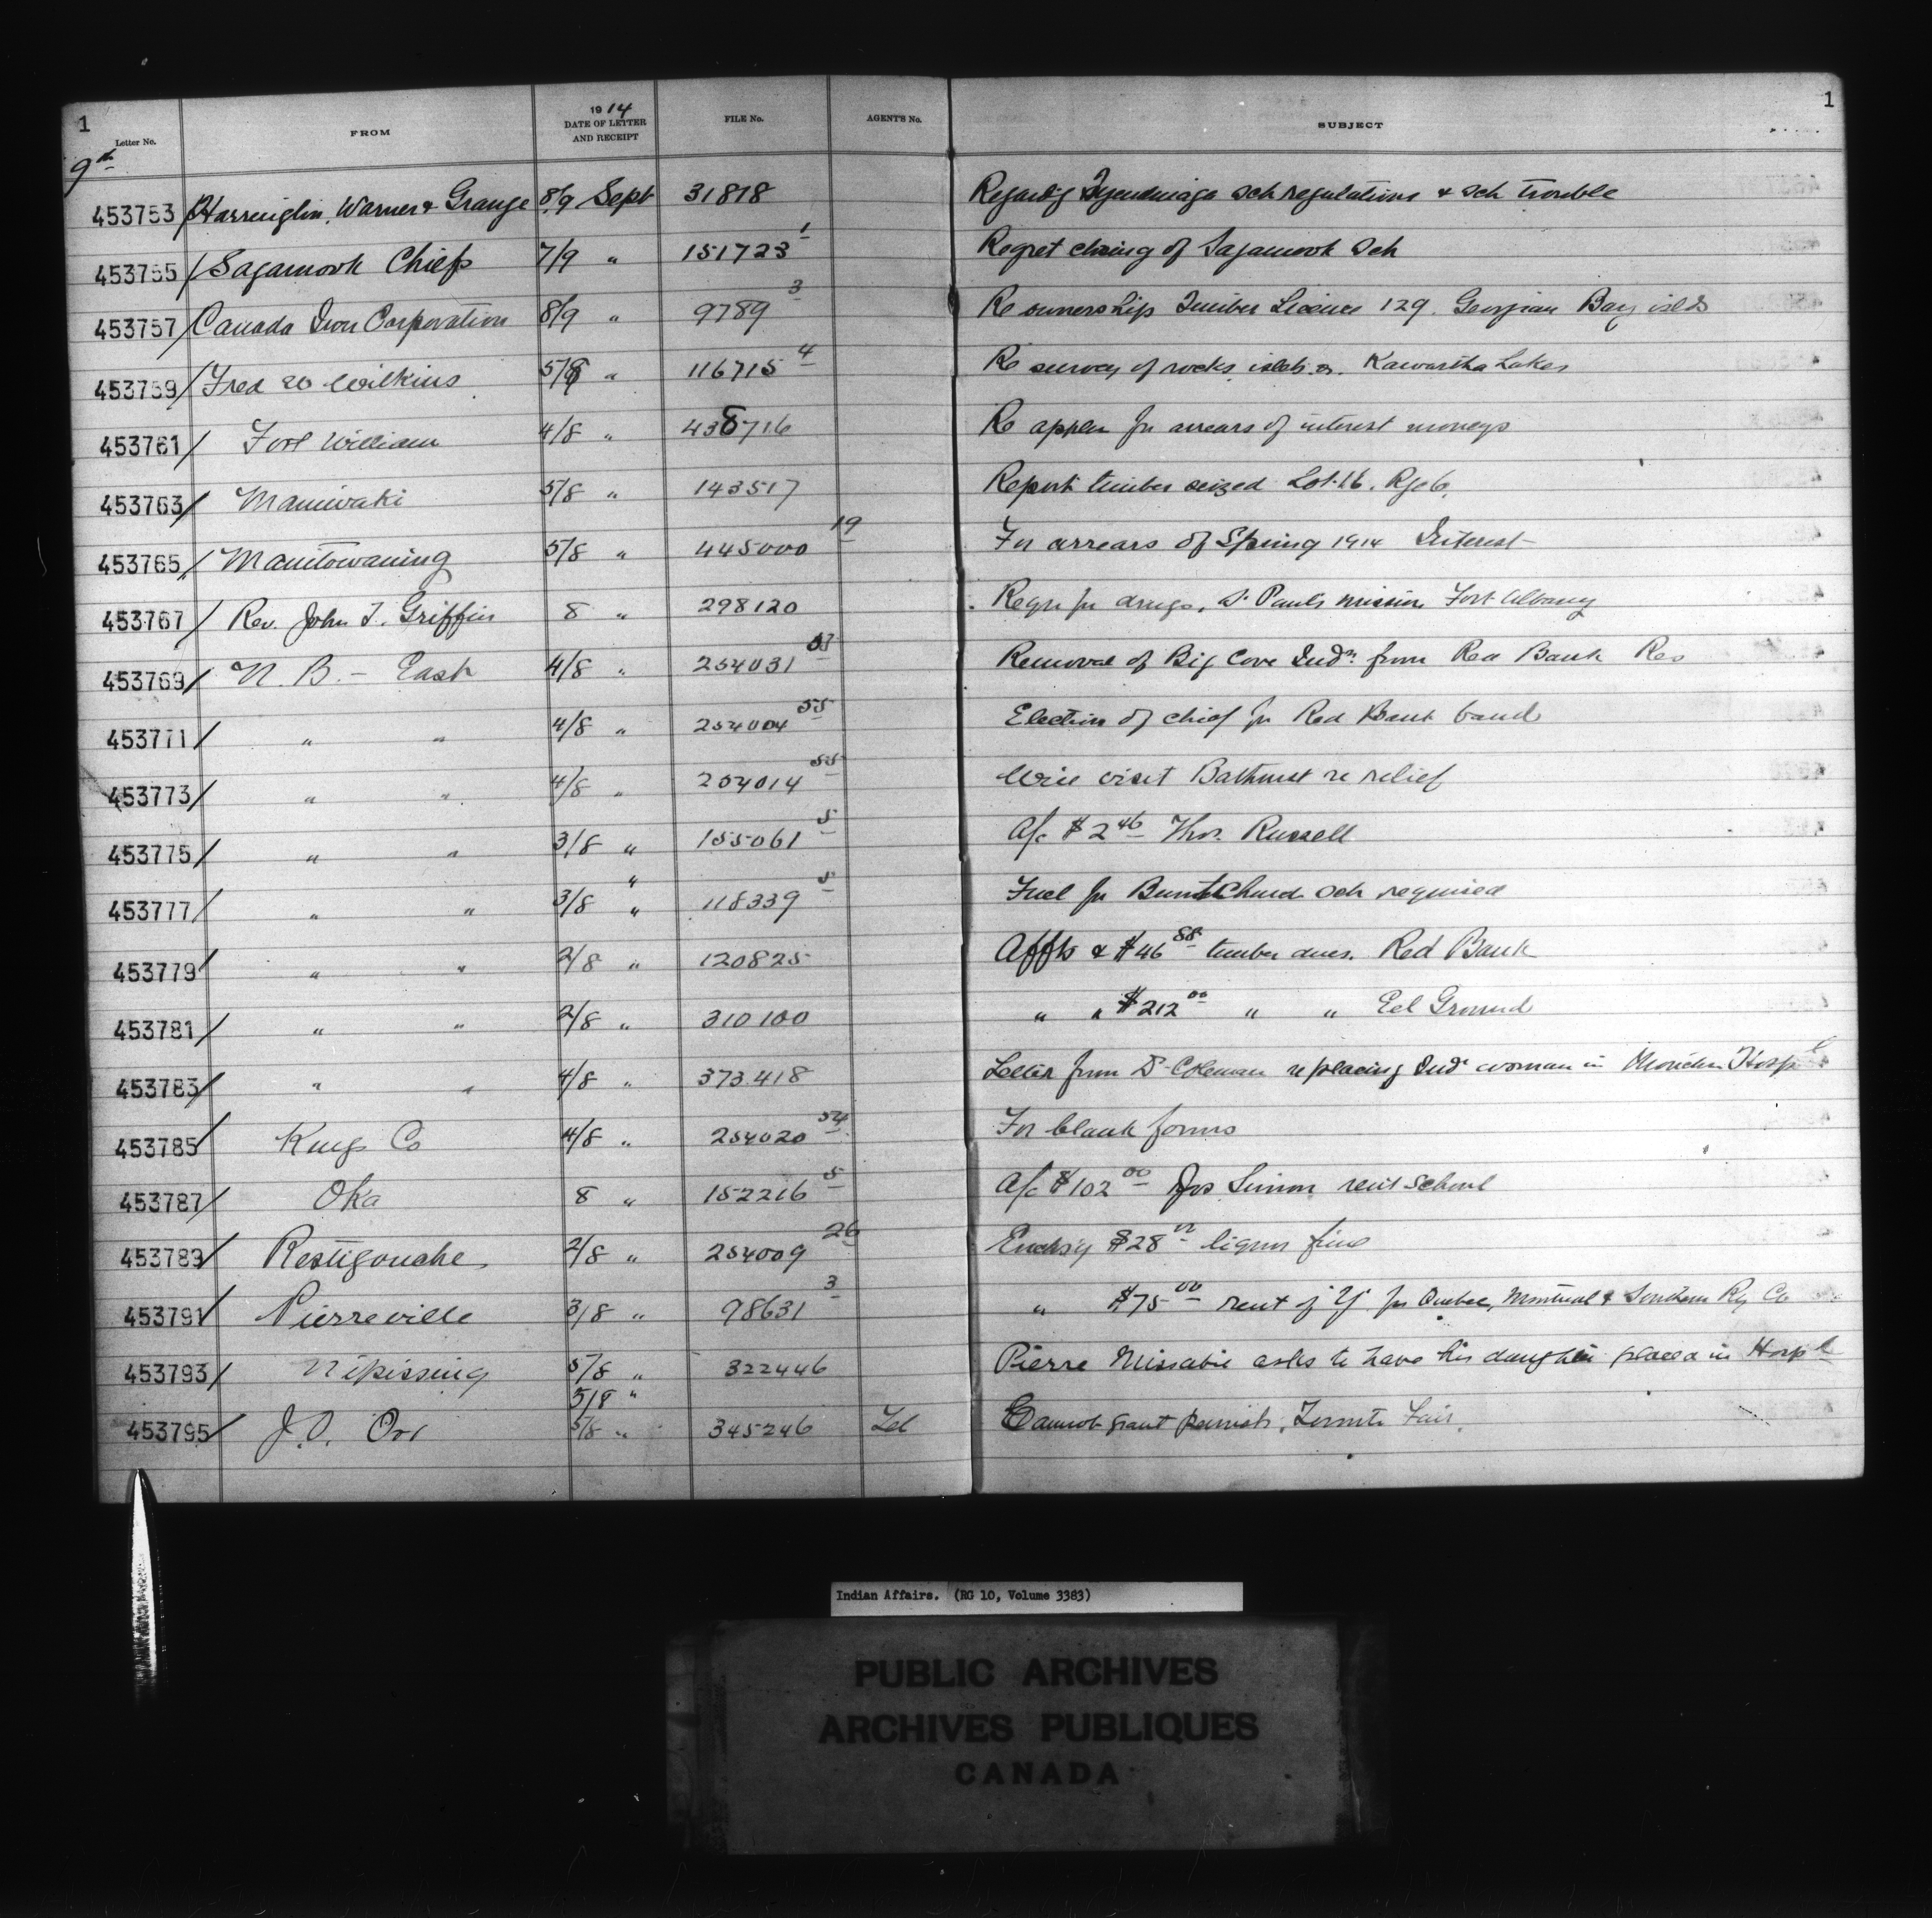 1 1
Letter No. FROM 1914 DATE OF LETTER AND RECEIPT FILE No. AGENT'S No. SUBJECT
9th
453753 Harrington, Warner & Grange 8/9 Sept 31818 Regardg Tyendinaga Sch regulations & Sch trouble
453755 Sagamook Chiefs 7/9 " 151723 1 Regret closing of Sagamook Sch
453757 Canada Iron Corporation 8/9 " 9789 3 Re ownership Timber Licence 129. Georgian Bay islds
453759 Fred W Wilkins " 116715 4 Re survey of rocks, islets Kawartha Lakes
453761 Fort William 4/8 " 438716 Re appln for arrears of interest moneys
453763 Maniwaki 5/8 " 143517 Report timber seized Lot 16. Rge 6.
453765 Manitowaning 5/8 " 445000 19 For arrears of Spring 1914 Interest
453767 Rev. John T. Griffin 8 " 298120 Requn for drugs, St Paul's Mission Fort Albany
453769 N. B. - East 4/8 " 254031 Removal of Big Cove Inds from Red Bank Res
453771 " " 4/8 " 254004 55 Election of chief for Red Bank band
453773 " " 4/8 " 254014 55 Will visit Bathurst re relief
453775 " " 3/8 " 155061 5 A/c $2 46 Thos. Russell
"
453777 " " 3/8 " 118339 5 Fuel for Burnt Church Sch required
453779 " " 2/8 " 120825 Affts & $46 88 timber dues. Red Bank
453781 " " 2/8 " 310100 " " $212 00 " " Eel Ground
453783 " " 4/8 " 373418 Letter from Dr Coleman re placing Ind woman in Moncton Hospl
453785 Kings Co 4/8 " 254020 54 For blank forms
453787 Oka 8 " 152216 5 A/c $102 00 Jos Simon rent school
453789 Restigouche 2/8 " 254009 26 Enclsg $28 liquor fine
453791 Pierreville 3/8 " 98631 3 " $75 00 rent of "Y" for Quebec, Montreal & Southern Ry Co
453793 Nipissing 5/8 " 322446 Pierre Missabie asks to have his daughter placed in Hospl
5/8 "
453795 J.O. Orr 5/8 " 345246 Tel Cannot grant permisn, Toronto Fair.
Indian Affairs. (RG 10, Volume 3383)
PUBLIC ARCHIVES
ARCHIVES PUBLIQUES
CANADA